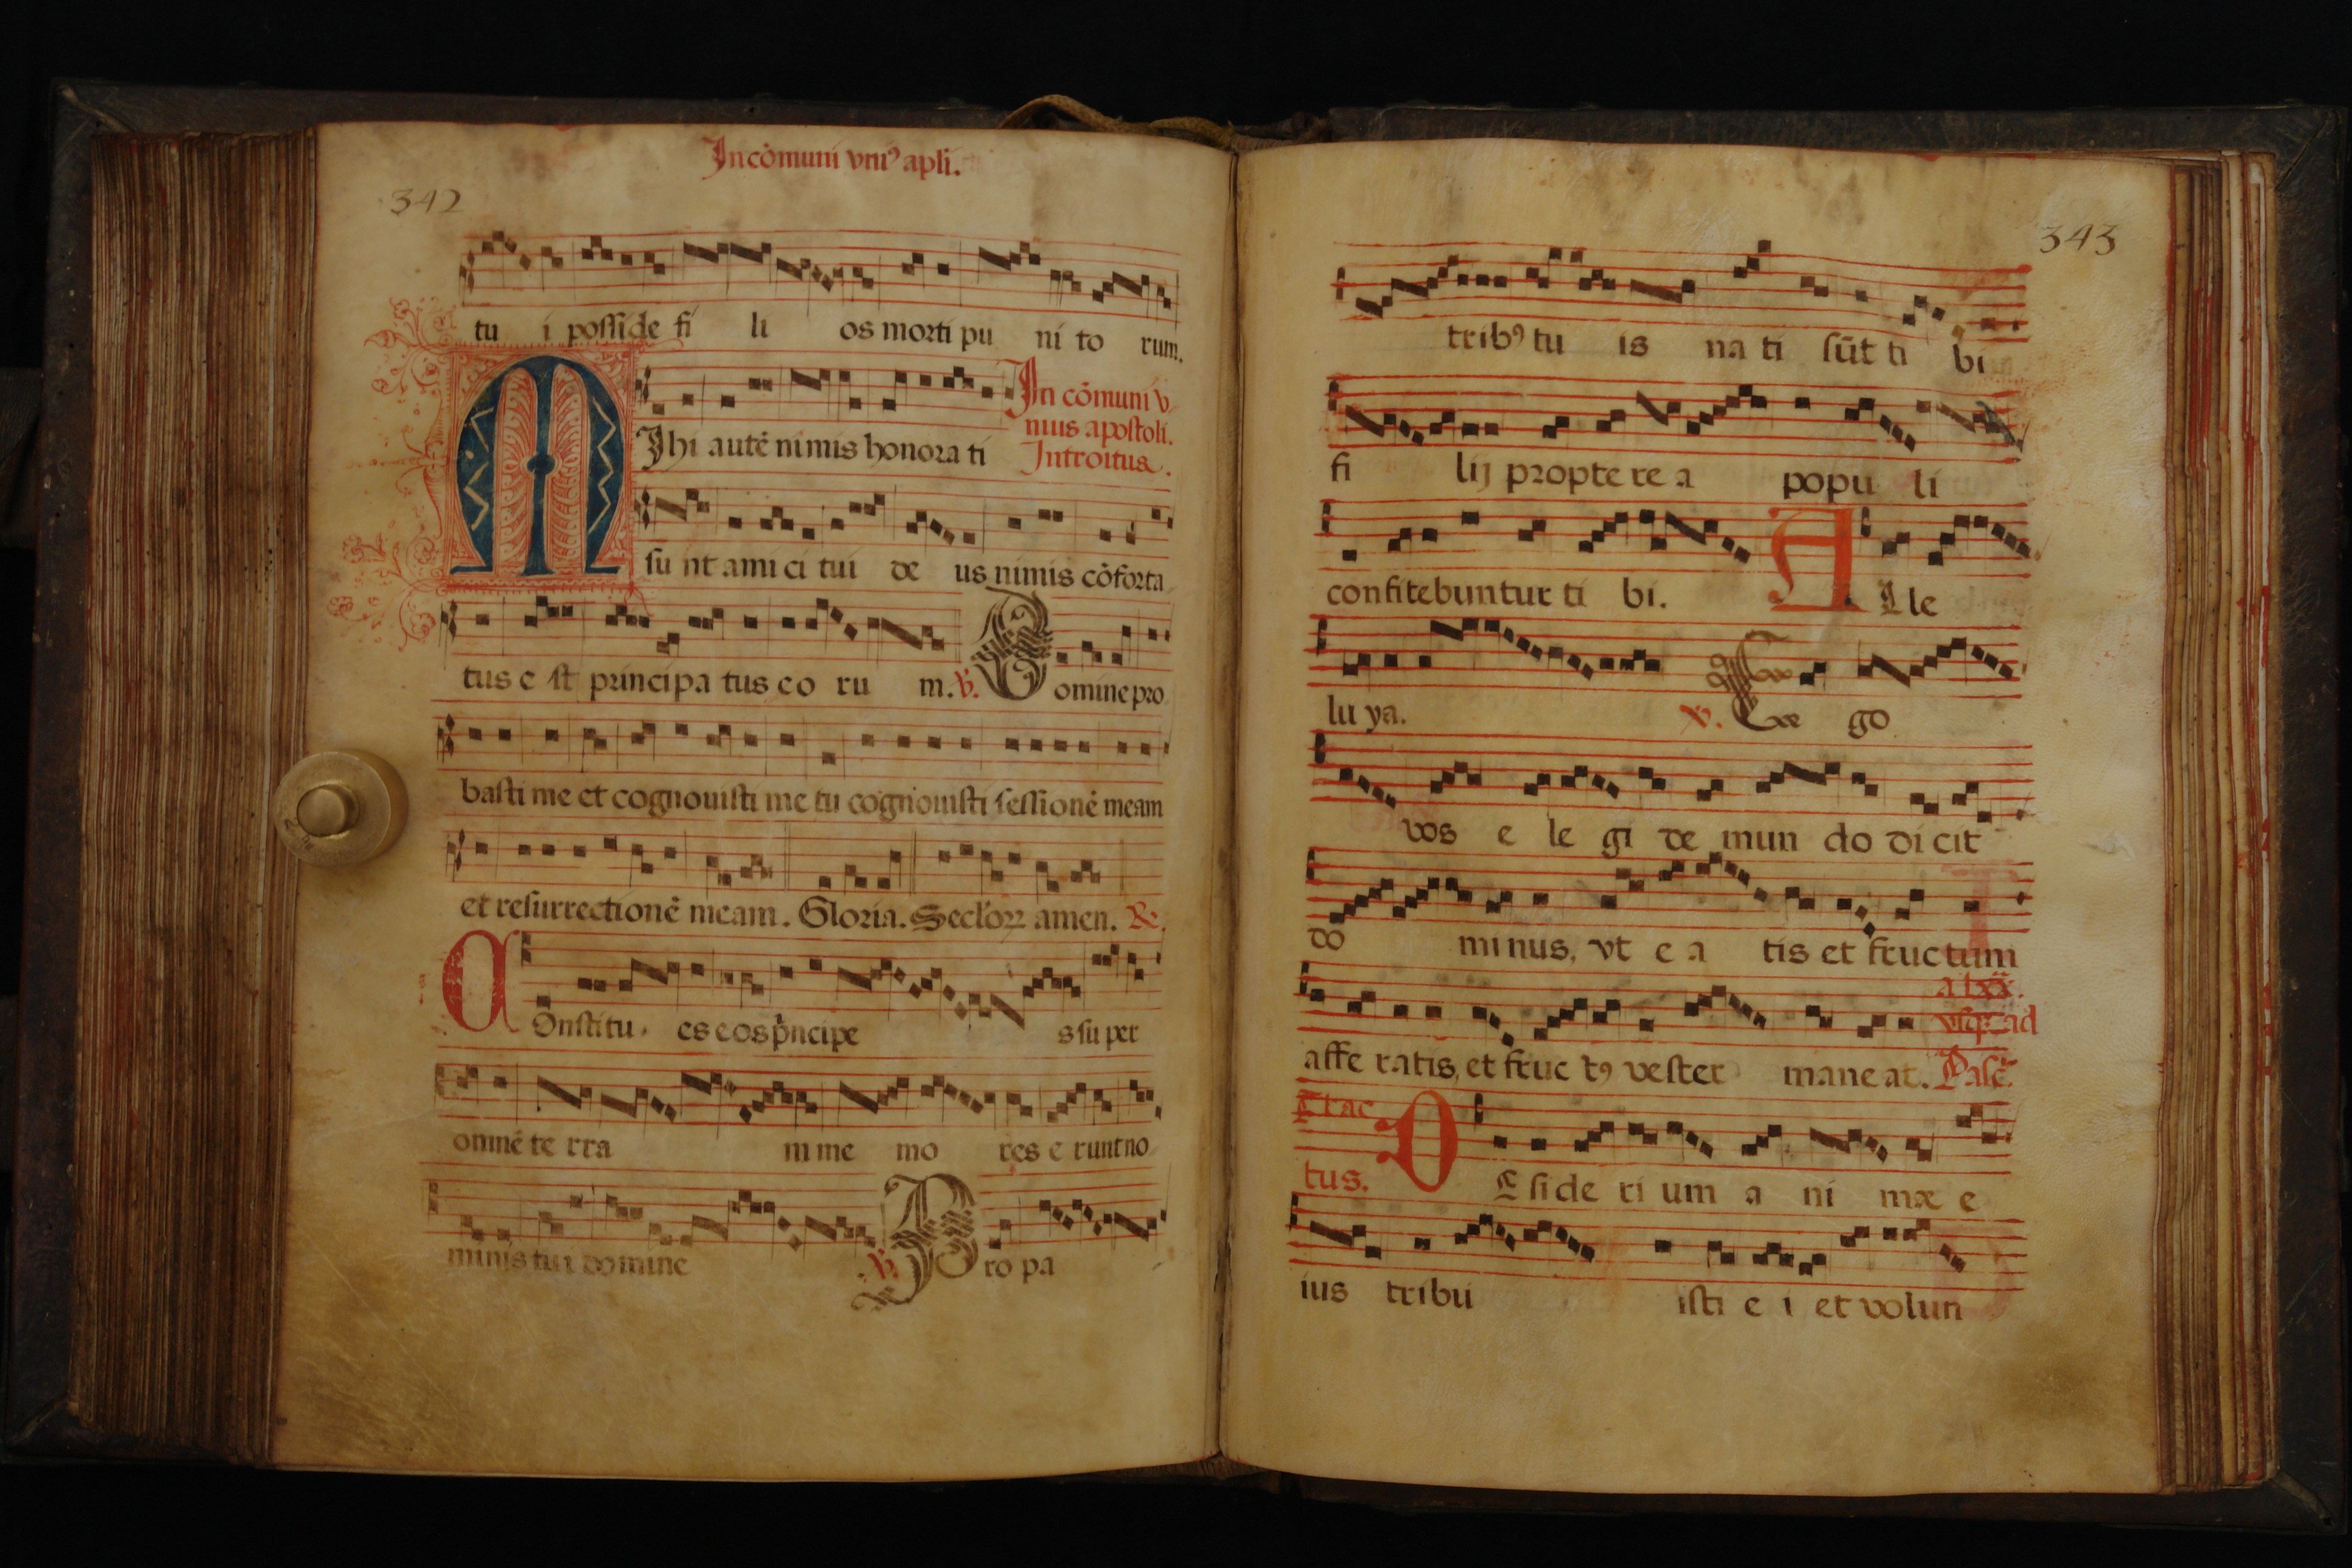 In cōmuni vniꝰ apli.
342
tu i posside fi li os morti pu ni to rum.
MIhi autē nimis honora ti
In cōmuni v
nius apostoli.
Introitus.
su nt ami ci tui de us nimis cōforta
tus e st principa tus eo ru m. ꝟ. Domine pro
basti me et cognouisti me tu cognouisti sessionē meam
et resurrectionē meam. Gloria. Seclorꝝ amen. ℞.
COnstitu es eos pncipe s su per
omnē te rra m me mo res e runt no
minis tui domine ꝟ. Pro pa
343
tribꝰ tu is na ti sūt ti bi
fi lij propte re a popu li
confitebuntur ti bi. A Lle
lu ya. ꝟ. Ego
vos e le gi de mun do di cit
do minus, vt e a tis et fructum
a lxx.
vsqꝫ ad
affe ratis, et fruc tꝰ vester mane at. Pasc.
Trac
tus. DEside ri um a ni mæ e
ius tribu isti e i et volun